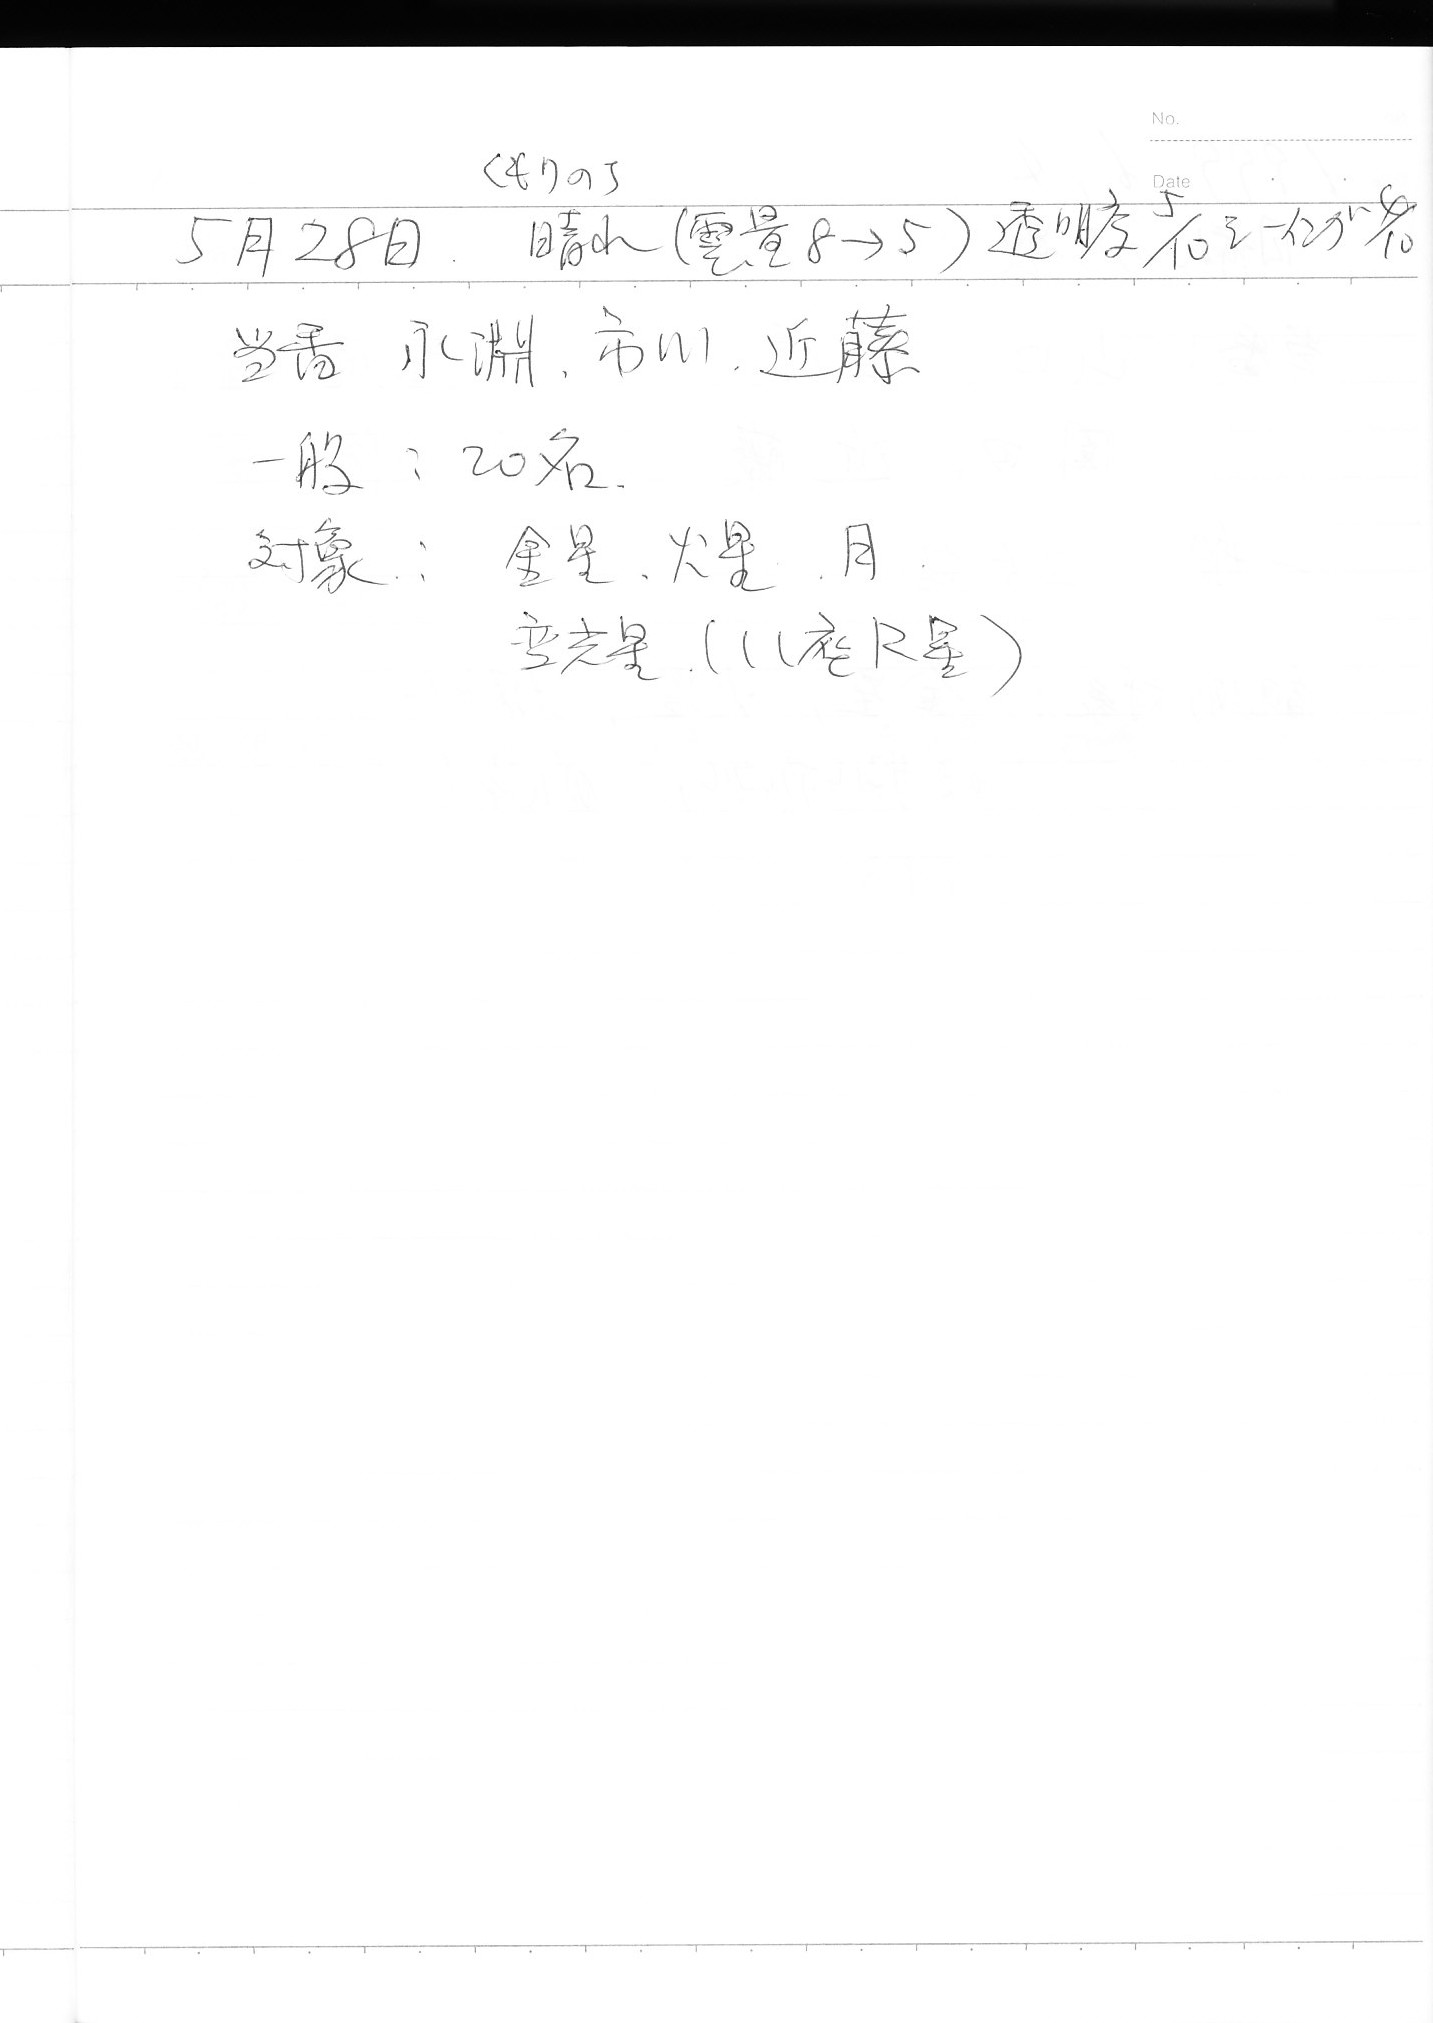 No.
Date
くもりのち
5月28日 晴れ(雲量8→5)透明度5/10シーイング6/10
当番 永淵、市川、近藤
一般:20名.
対象: 金星、火星、月
変光星(しし座R星)